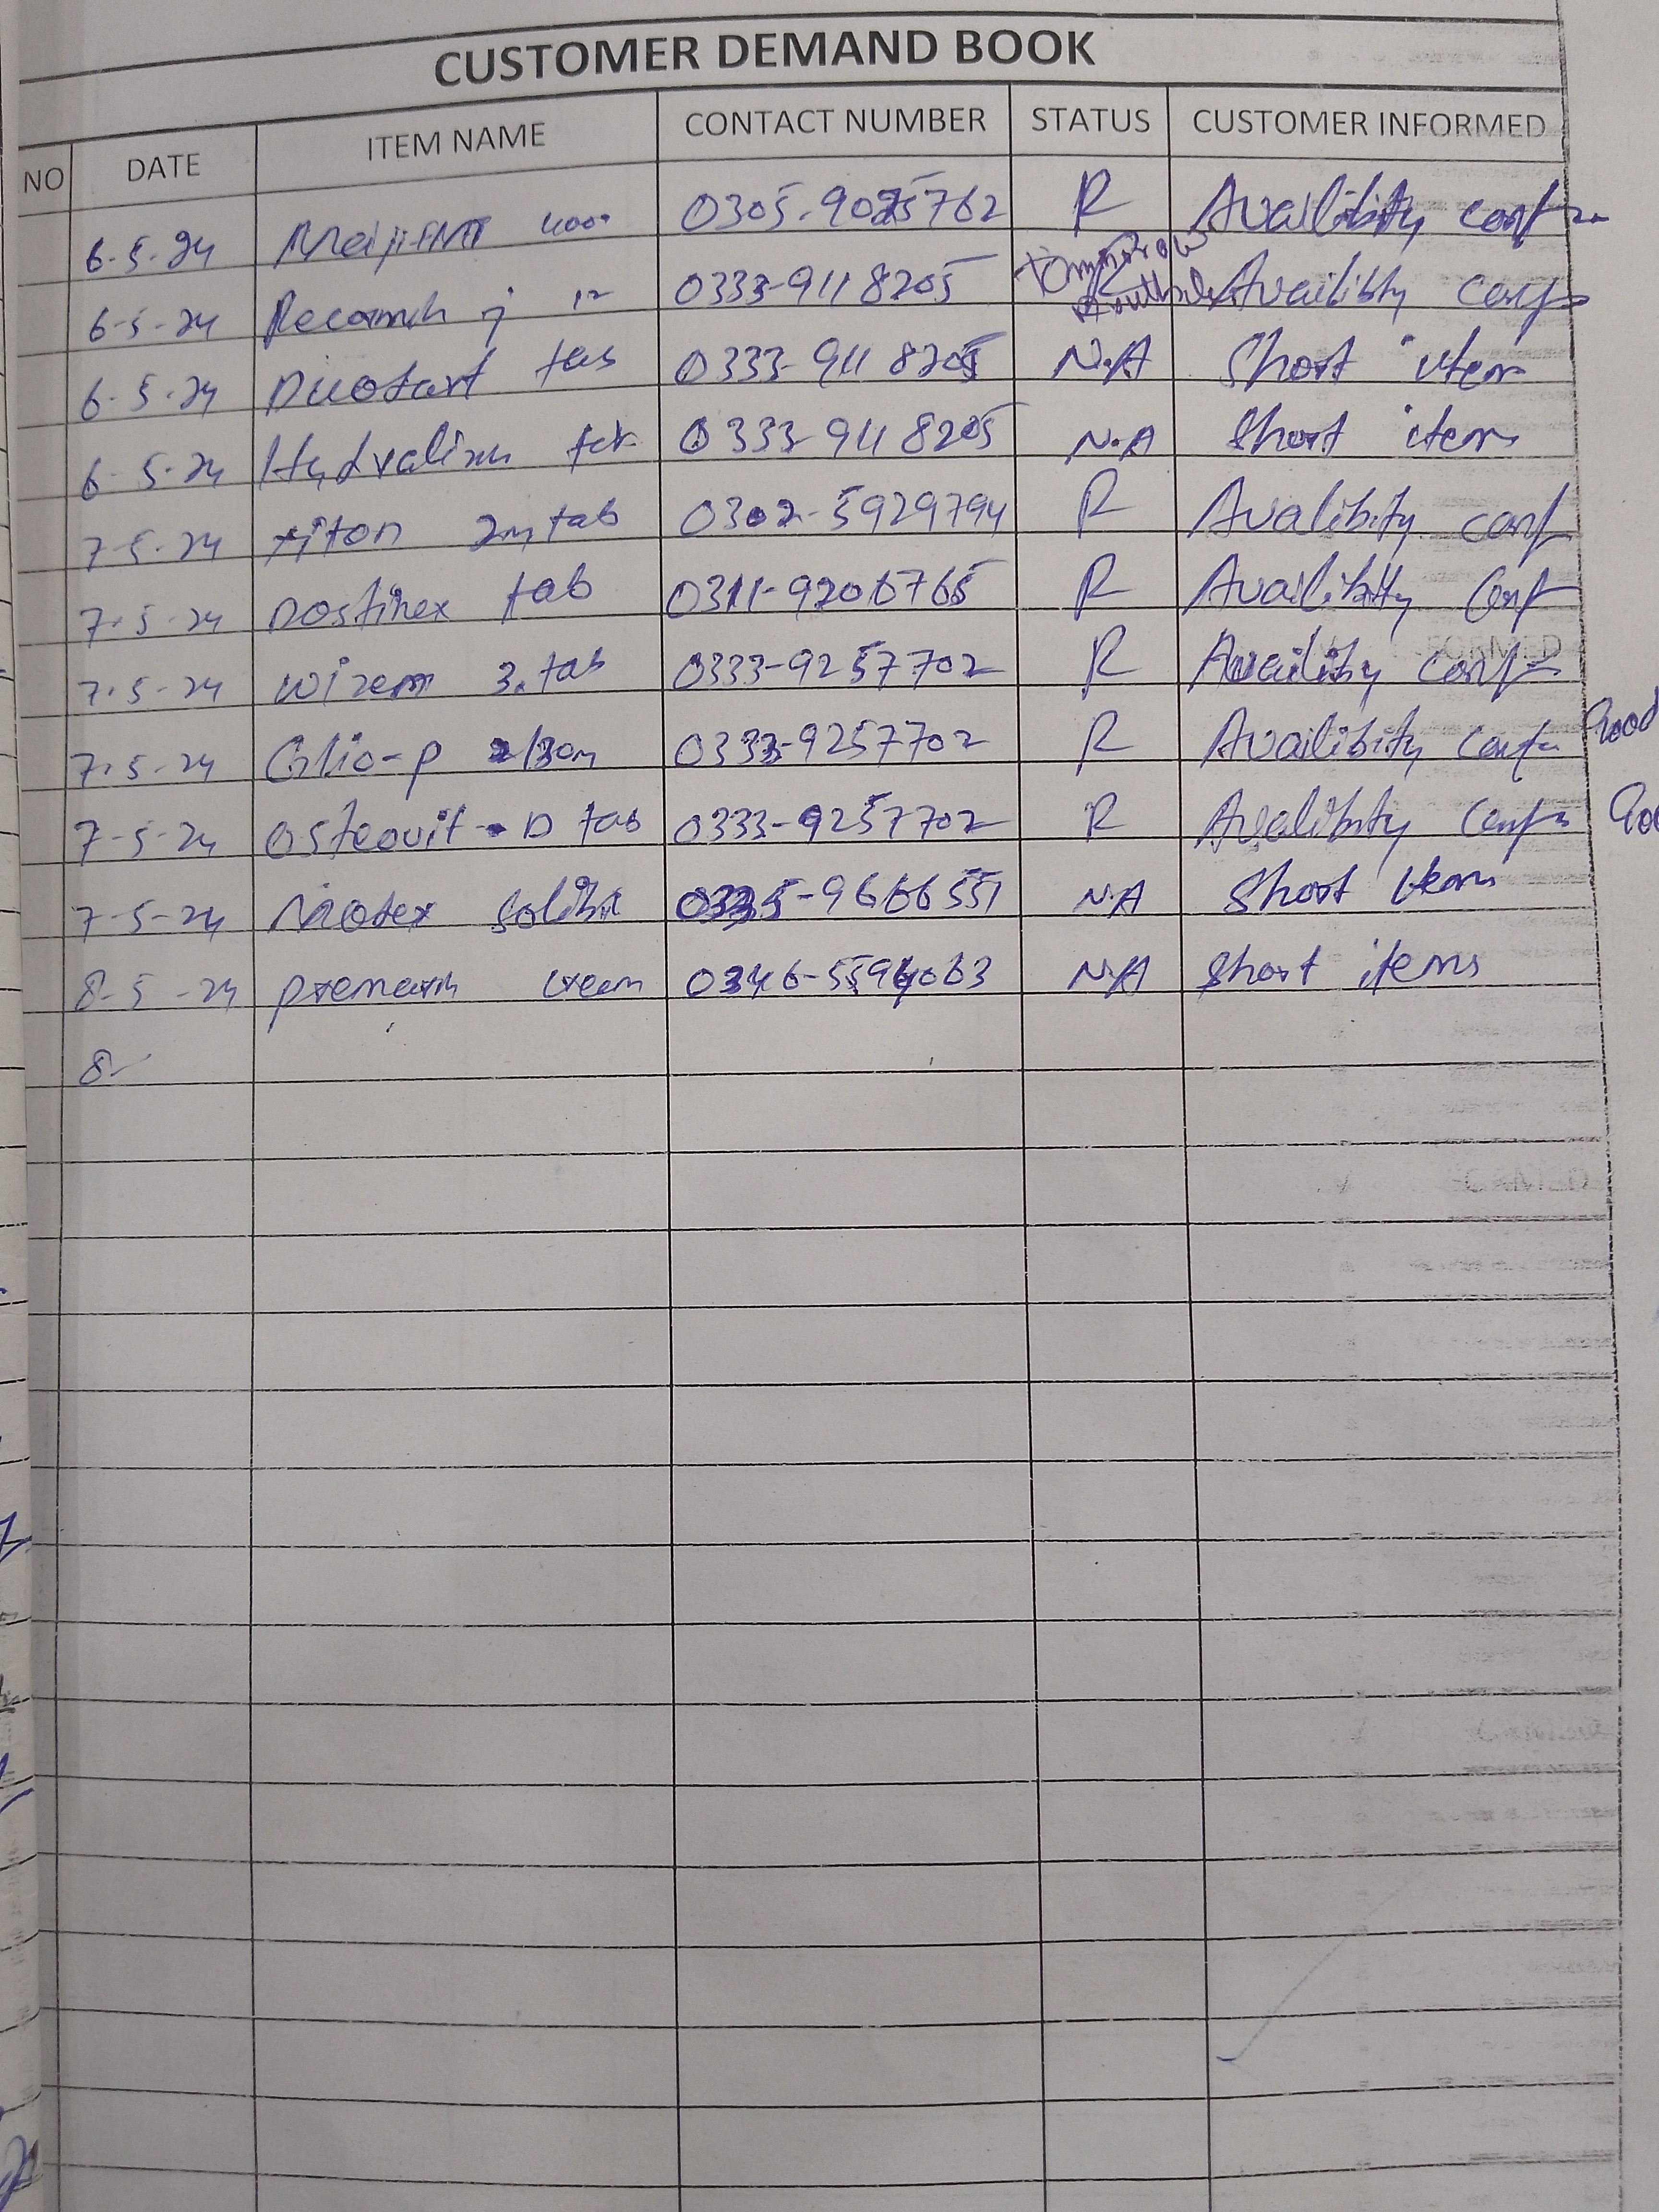 CUSTOMER DEMAND BOOK
NO DATE ITEM NAME CONTACT NUMBER STATUS CUSTOMER INFORMED
6-5-24 0305-9025762 R Availibity conf
6-5-24 0333-9118205 Tommorow R Availibity conf
6-5-24 tab 0333-9118205 N.A Short item
6-5-24 0333-9118205 N.A Short item
7-5-24 xiton 2m tab 0302-5929794 R Avalibity conf
7-5-24 Dostinex tab 0311-9206765 R Availibity Conf
7-5-24 3. tab 0333-9257702 R Availibity conf
7-5-24 Glio-p 2/30m 0333-9257702 R Availibity conf
7-5-24 Osteovit-D tab 0333-9257702 R Avalibity Conf
7-5-24 0335-9666551 N.A Short Item
8-5-24 premarin cream 0346-5594063 N.A Short items
8-